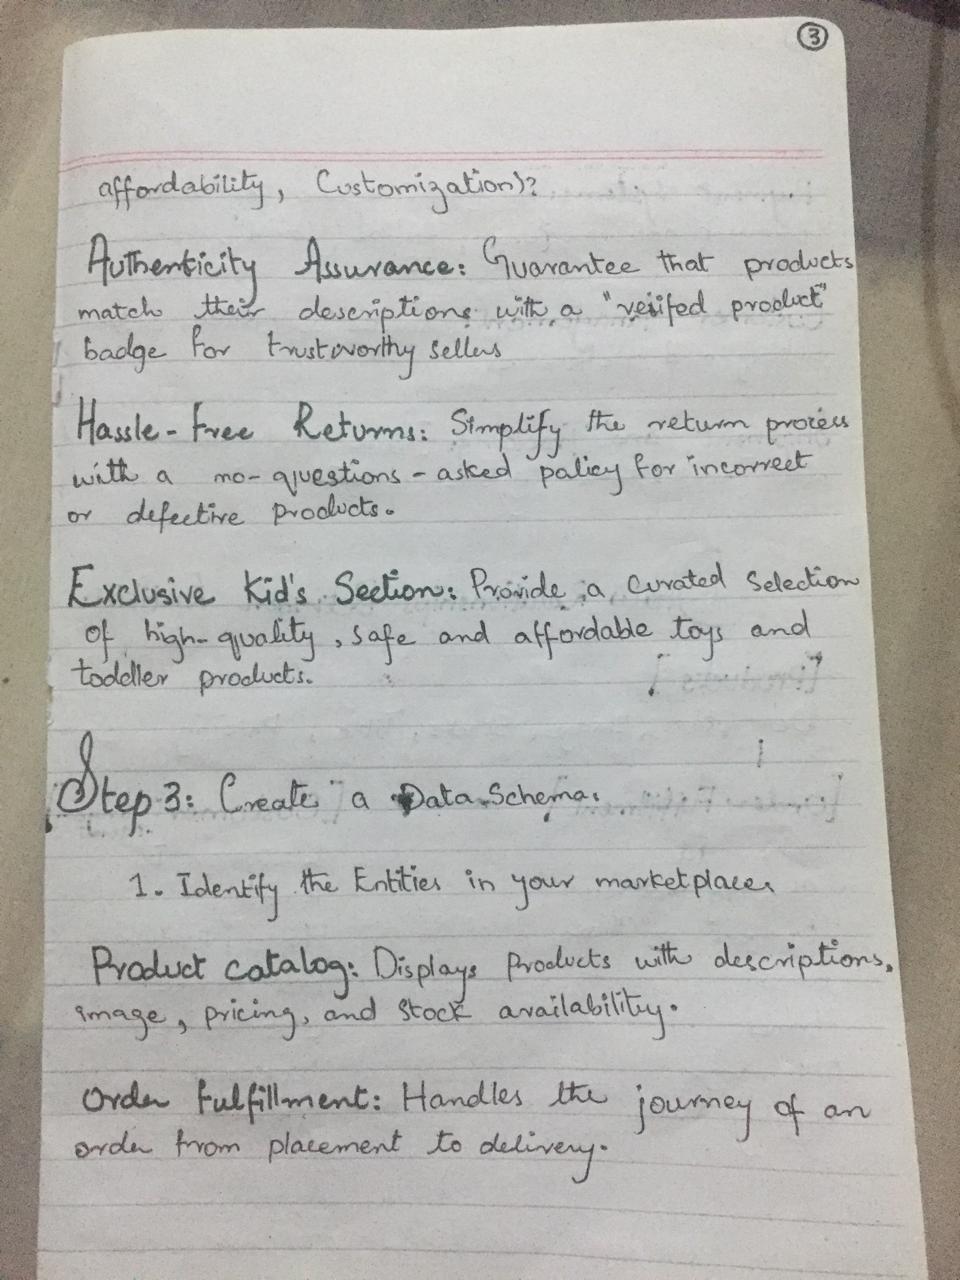 3
affordability, Customization)?
Authenticity Assurance: Guarantee that products
match their descriptions with a "verifed product"
badge for trustworthy sellers
Hassle-Free Returns: Simplify the return process
with a no-questions-asked policy for incorrect
or defective products.
Exclusive Kid's Section: Provide a curated selection
of high-quality, safe and affordable toys and
toddler products.
Step 3: Create a Data Schema.
1. Identify the Entities in your marketplace.
Product catalog: Displays Products with descriptions,
image, pricing, and stock availability.
Order Fulfillment: Handles the journey of an
order from placement to delivery.